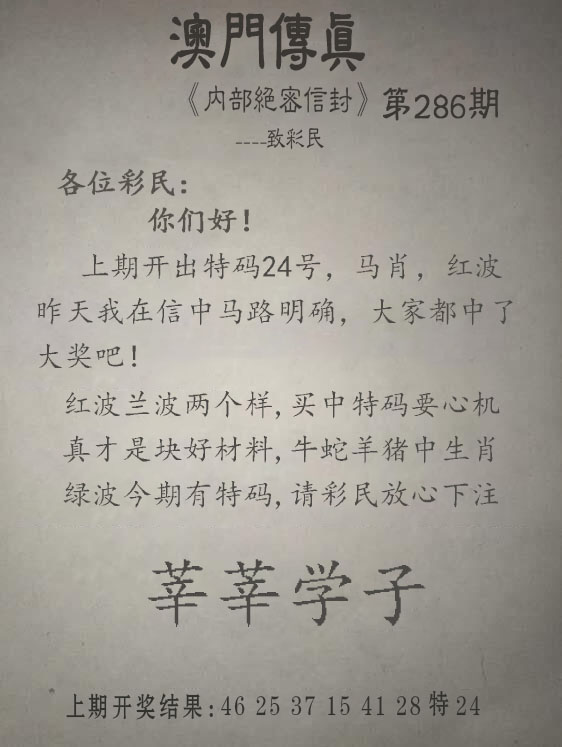 澳門傳真
《内部絕密信封》第286期
----致彩民
各位彩民:
你们好!
上期开出特码24号，马肖，红波
昨天我在信中马路明确，大家都中了
大奖吧!
红波兰波两个样,买中特码要心机
真才是块好材料,牛蛇羊猪中生肖
绿波今期有特码,请彩民放心下注
莘莘学子
上期开奖结果:46 25 37 15 41 28 特 24